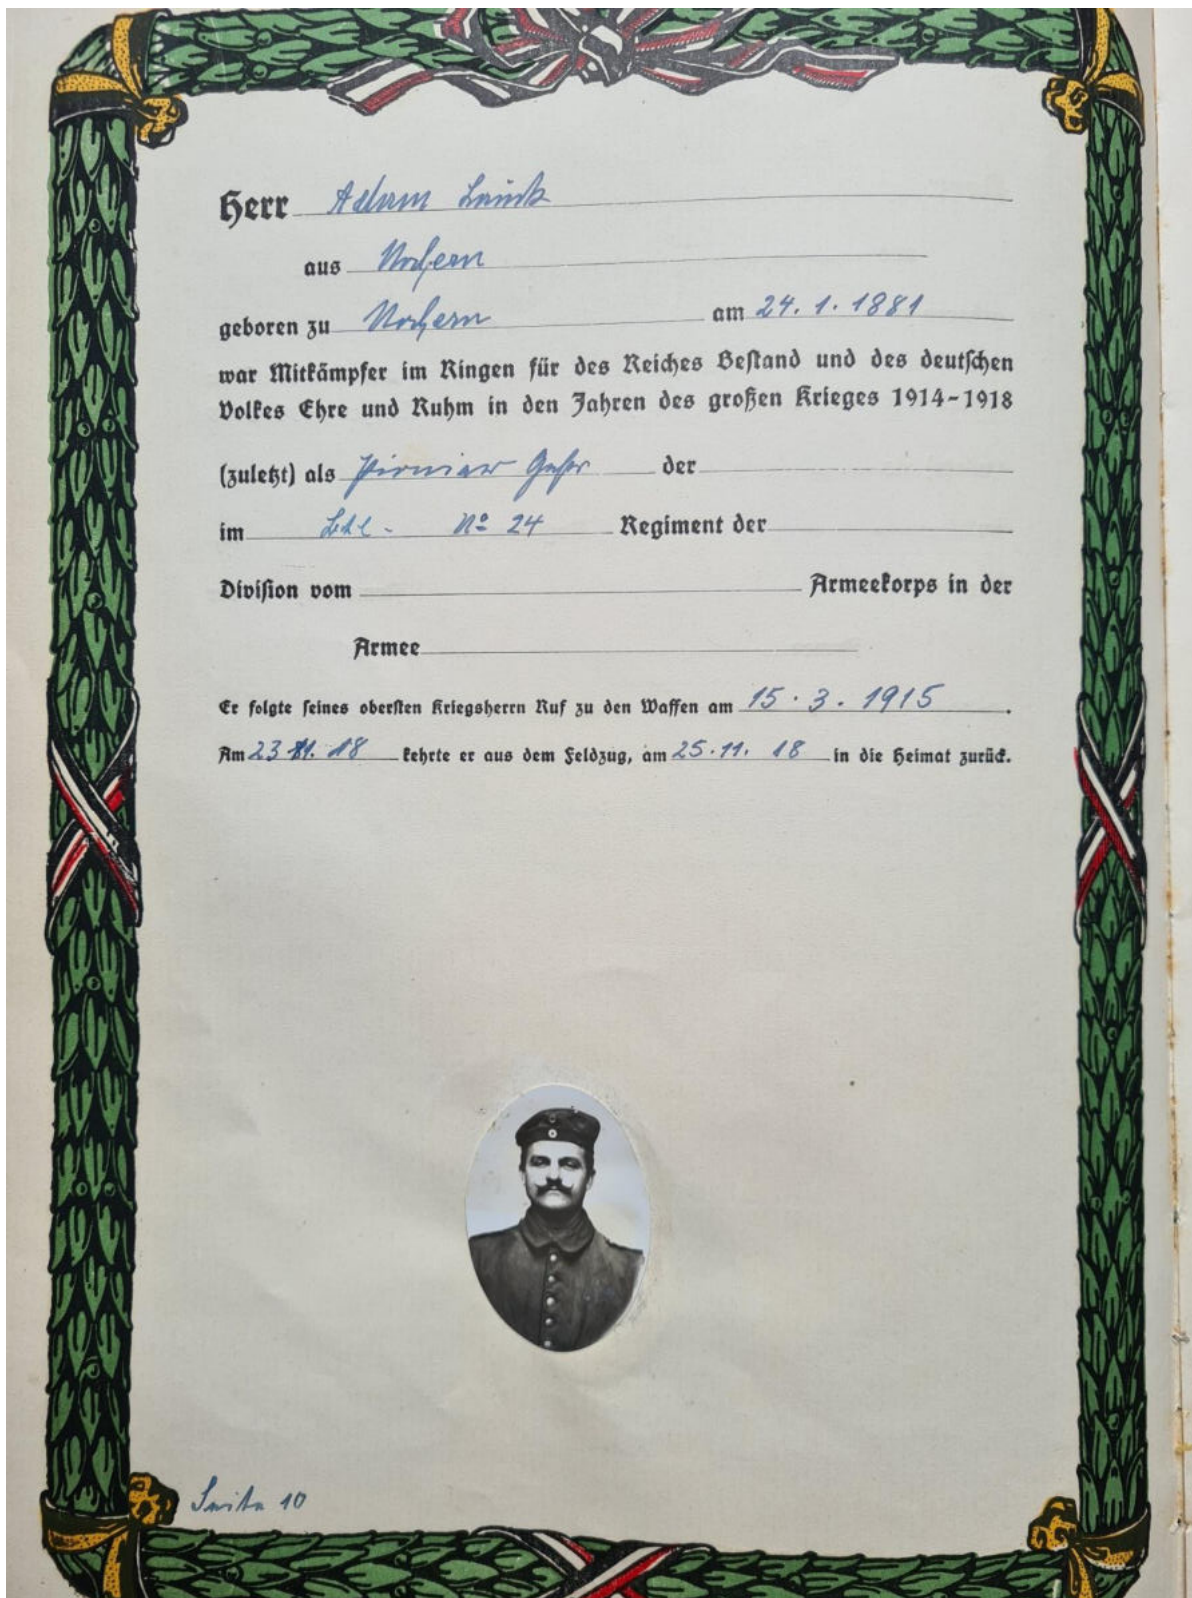 Herr Adam
aus Nochern
geboren zu Nochern am 24. 1. 1881
war Mitkämpfer im Ringen für des Reiches Bestand und des deutschen
Volkes Ehre und Ruhm in den Jahren des großen Krieges 1914-1918
(zuletzt) als Pionier der
im Btl. No 24 Regiment der
Division vom Armeekorps in der
Armee
Er folgte seines obersten Kriegsherrn Ruf zu den Waffen am 15. 3. 1915.
Am 23 11. 18 kehrte er aus dem Feldzug, am 25. 11. 18 in die Heimat zurück.
Seite 10